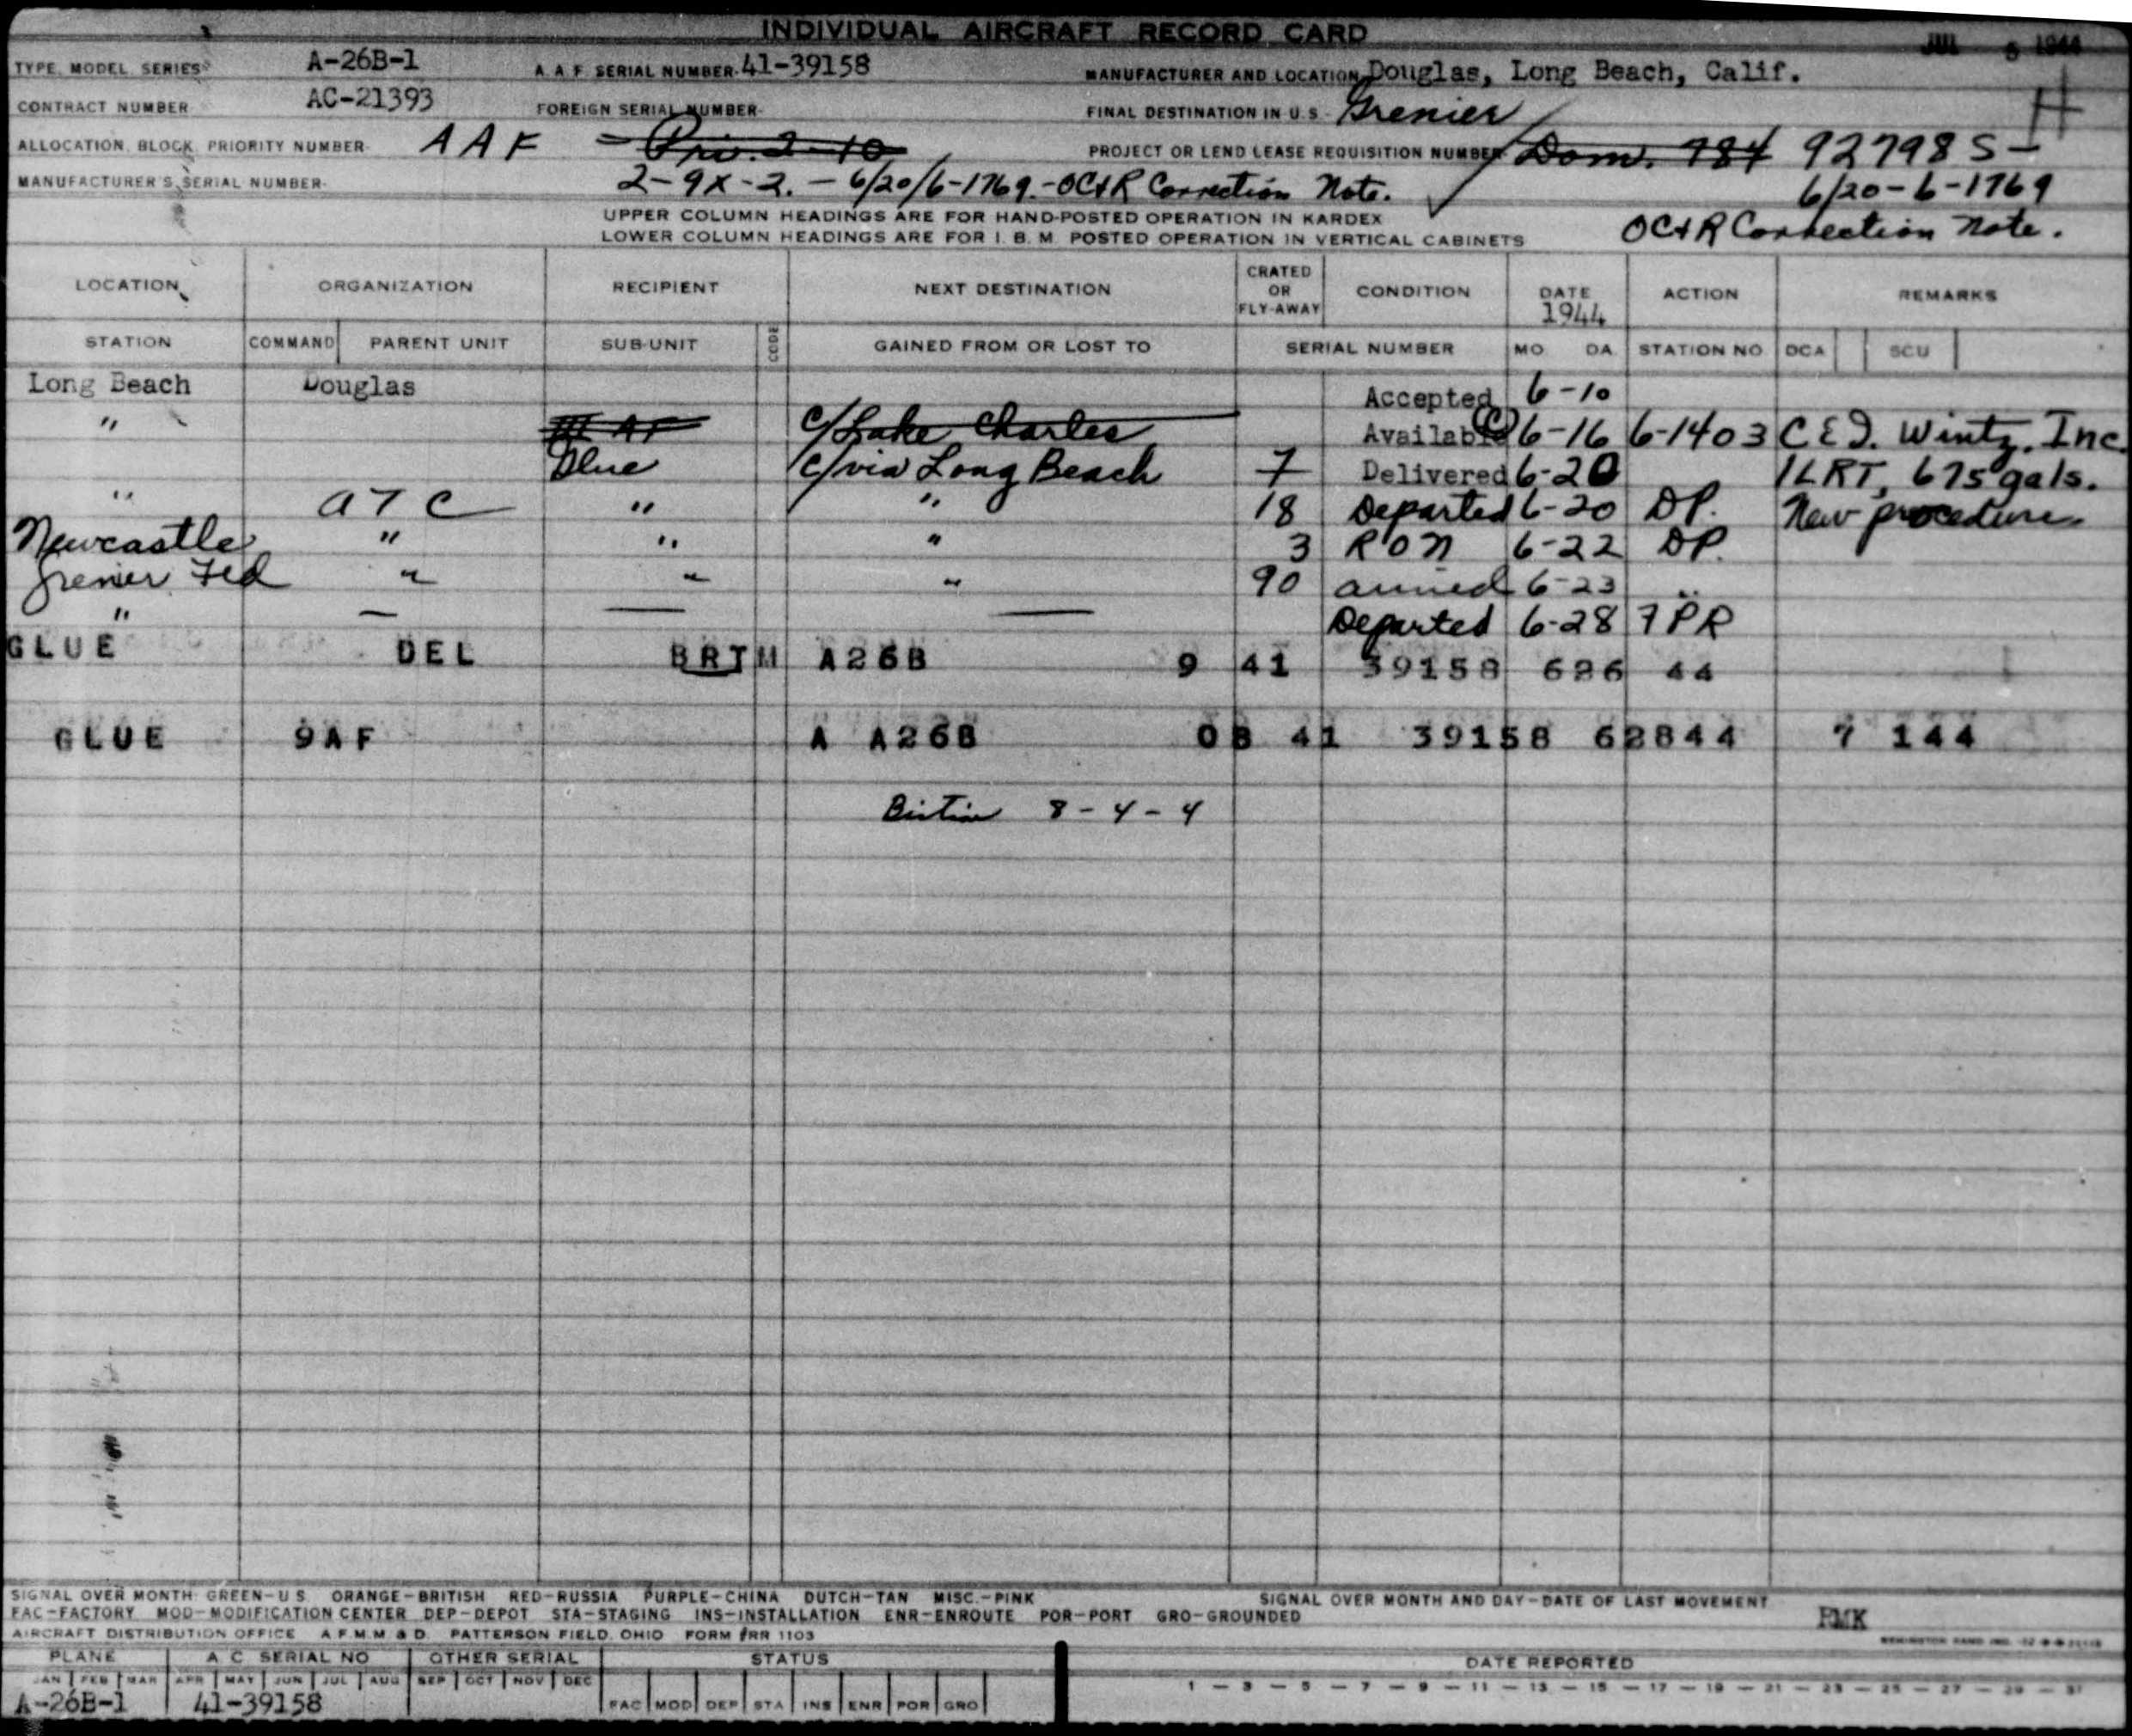 INDIVIDUAL AIRCRAFT RECORD CARD
JUL 6 1944
TYPE, MODEL, SERIES A-26B-1 A.A.F. SERIAL NUMBER- 41-39158 MANUFACTURER AND LOCATION Douglas, Long Beach, Calif.
CONTRACT NUMBER AC-21393 FOREIGN SERIAL NUMBER- FINAL DESTINATION IN U.S.- Grenier H
ALLOCATION, BLOCK, PRIORITY NUMBER- AAF - Pri. 2-10 PROJECT OR LEND LEASE REQUISITION NUMBER Dom. 784 92798S-
MANUFACTURER'S SERIAL NUMBER- 2-9X-2. - 6/20/6-1769.-OC&R Correction Note. ✓ 6/20-6-1769
UPPER COLUMN HEADINGS ARE FOR HAND-POSTED OPERATION IN KARDEX
LOWER COLUMN HEADINGS ARE FOR I. B. M. POSTED OPERATION IN VERTICAL CABINETS OC&R Correction Note.
LOCATION ORGANIZATION RECIPIENT NEXT DESTINATION CRATED OR FLY-AWAY CONDITION DATE 1944 ACTION REMARKS
STATION COMMAND PARENT UNIT SUB-UNIT CODE GAINED FROM OR LOST TO SERIAL NUMBER MO DA STATION NO DCA SCU
Long Beach Douglas Accepted 6-10
" III AF C/Lake Charles Available (C) 6-16 6-1403 C&D. Wintz, Inc.
Glue C/via Long Beach 7 Delivered 6-20 1LRT, 675 gals.
" ATC " " 18 Departed 6-20 DP. New procedure
Newcastle " " " 3 RON 6-22 DP.
Grenier Fld " " " 90 arrived 6-23 "
" — — — Departed 6-28 7PR
GLUE DEL BRTM A26B 9 41 39158 626 44
GLUE 9AF A A26B 0B 41 39158 62844 7 144
8-4-4
SIGNAL OVER MONTH: GREEN-U S ORANGE-BRITISH RED-RUSSIA PURPLE-CHINA DUTCH-TAN MISC.-PINK SIGNAL OVER MONTH AND DAY-DATE OF LAST MOVEMENT
FAC-FACTORY MOD-MODIFICATION CENTER DEP-DEPOT STA-STAGING INS-INSTALLATION ENR-ENROUTE POR-PORT GRO-GROUNDED
AIRCRAFT DISTRIBUTION OFFICE A.F.M.M & D. PATTERSON FIELD, OHIO FORM #RR 1103
PLANE A C SERIAL NO OTHER SERIAL STATUS DATE REPORTED
JAN FEB MAR APR MAY JUN JUL AUG SEP OCT NOV DEC
1 - 3 - 5 - 7 - 9 - 11 - 13 - 15 - 17 - 19 - 21 - 23 - 25 - 27 - 29 - 31
A-26B-1 41-39158 FAC MOD DEP STA INS ENR POR GRO